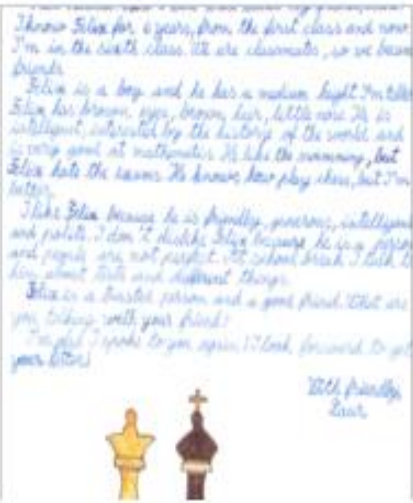 I know Felix for 6 years, from the first class and now
I'm in the sixth class. We are classmates, so we
friends
Felix is a boy and he has a medium height I'm
Felix has brown eyes, brown hair, little nose He is
intelligent, interested by the history of the world and
is very good at mathematics. He like the , but
Felix hate the He knows how play chess, but I'm
better.
I like Felix because he is friendly, generous,
and polite. I don't dislike Felix because he is a
and people are not perfect. At school break I talk
him about tests and different things.
Felix is a trusted person and a good friend. What are
you talking with your friend?
I'm glad I spoke to you again. I look forward to
your letter!
With friendly,